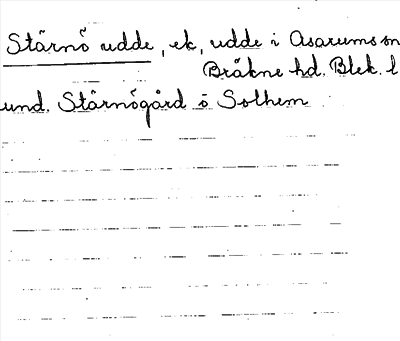 Stärnö udde, ek, udde i Asarums sn
Bräkne hd. Blek. l
und. Stärnögård o Solhem